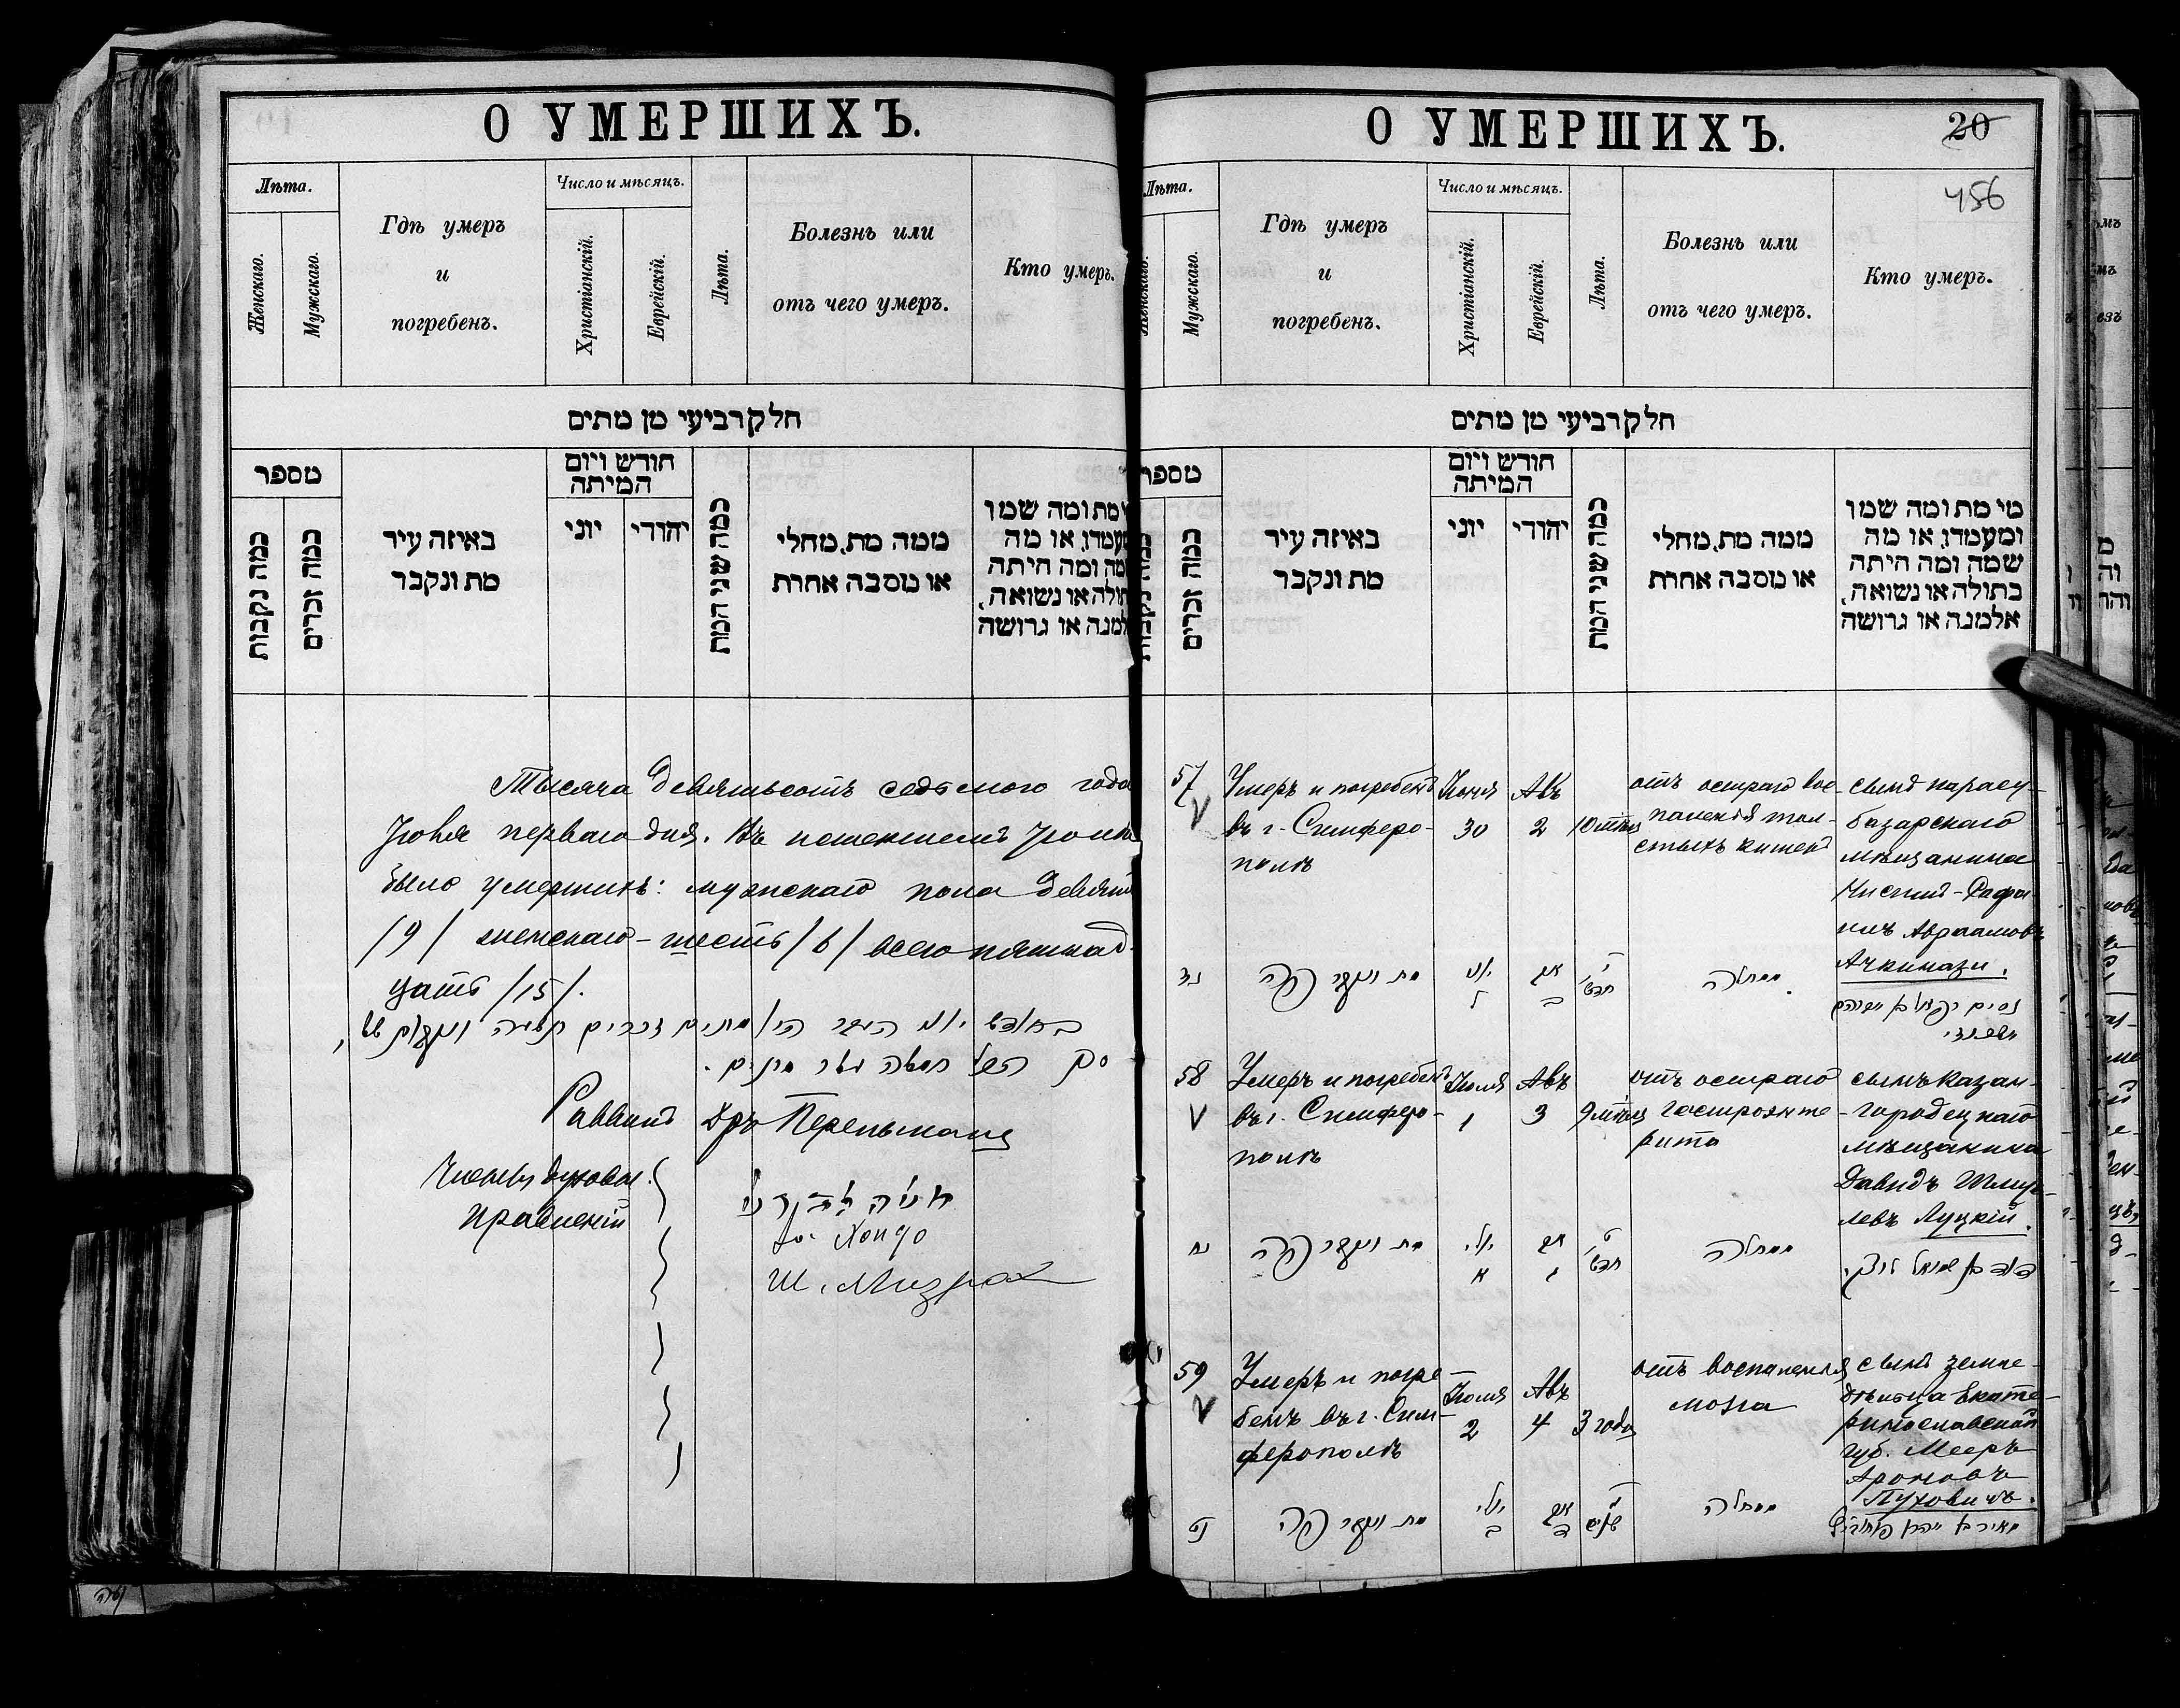 О УМЕРШИХЪ.
Лѣта.
Женскаго.
Мужскаго.
Гдѣ умеръ
и
погребенъ.
Число и мѣсяцъ.
Христіанскій.
Еврейскій.
Лѣта.
Болезнь или
отъ чего умеръ.
Кто умеръ.
חלק רביעי מן מתים
מספר
כמה נקבות
כמה זכרים
באיזה עיר
מת ונקבר
חודש ויום
המיתה
יוני
יהודי
כמה שני המת
ממה מת, מחלי
או מסבה אחרת
מת ומה שמו
ומעמדו, או מה
שמה ומה היתה
בתולה או נשואה,
אלמנה או גרושה
Тысяча девятьсотъ седьмого года
Іюля перваго дня. Въ истекшемъ Іюнѣ
было умершихъ: мужскаго пола девять
/9/ женскаго - шесть /6/ всего пятнад-
цать /15/.
סך הכל חמשה עשר מתים.
Раввинъ Дръ Перельманъ
Члены духовн.
Правленій
Хондо
Ш. Мизрах
О УМЕРШИХЪ.
20
456
Лѣта.
Женскаго.
Мужскаго.
Гдѣ умеръ
и
погребенъ.
Число и мѣсяцъ.
Христіанскій.
Еврейскій.
Лѣта.
Болезнь или
отъ чего умеръ.
Кто умеръ.
חלק רביעי מן מתים
מספר
כמה זכרים
באיזה עיר
מת ונקבר
חודש ויום
המיתה
יוני
יהודי
כמה שני המת
ממה מת, מחלי
או מסבה אחרת
מי מת ומה שמו
ומעמדו, או מה
שמה ומה היתה
בתולה או נשואה,
אלמנה או גרושה
57
Умеръ и погребенъ
въ г. Симферо-
полѣ
Іюня
30
Авъ
2
10 мѣц
отъ остраго вос-
паленія тол-
стыхъ кишекъ
сынъ карасу-
базарскаго
мѣщанина
Нисимъ-Рафа-
илъ Авраамовъ
Ачкинази.
נז
מת ונקבר פה
יוני
ל
אב
ב
י
חדש'
ממחלה
נסים רפאל בן אברהם
אשכנזי
58
Умеръ и погребенъ
въ г. Симферо-
полѣ
Іюля
1
Авъ
3
9 мѣц
отъ остраго
гастроэнте-
рита
сынъ Казан-
городецкаго
мѣщанина
Давидъ Шмуй-
левъ Луцкій.
נח
מת ונקבר פה
יולי
א
אב
ג
ט'
חדש'
ממחלה
דוד בן שמואל לוצקי
59
Умеръ и погре-
бенъ въ г. Сим-
ферополѣ
Іюля
2
Авъ
4
3 года
отъ воспаленія
мозга
сынъ земле-
дѣльца Екате-
ринославской
губ. Мееръ
Ароновъ
Пуховичъ.
נט
מת ונקבר פה
יולי
ב
אב
ד
ג'
שנים
ממחלה
מאיר בן אהרן פוחוביץ